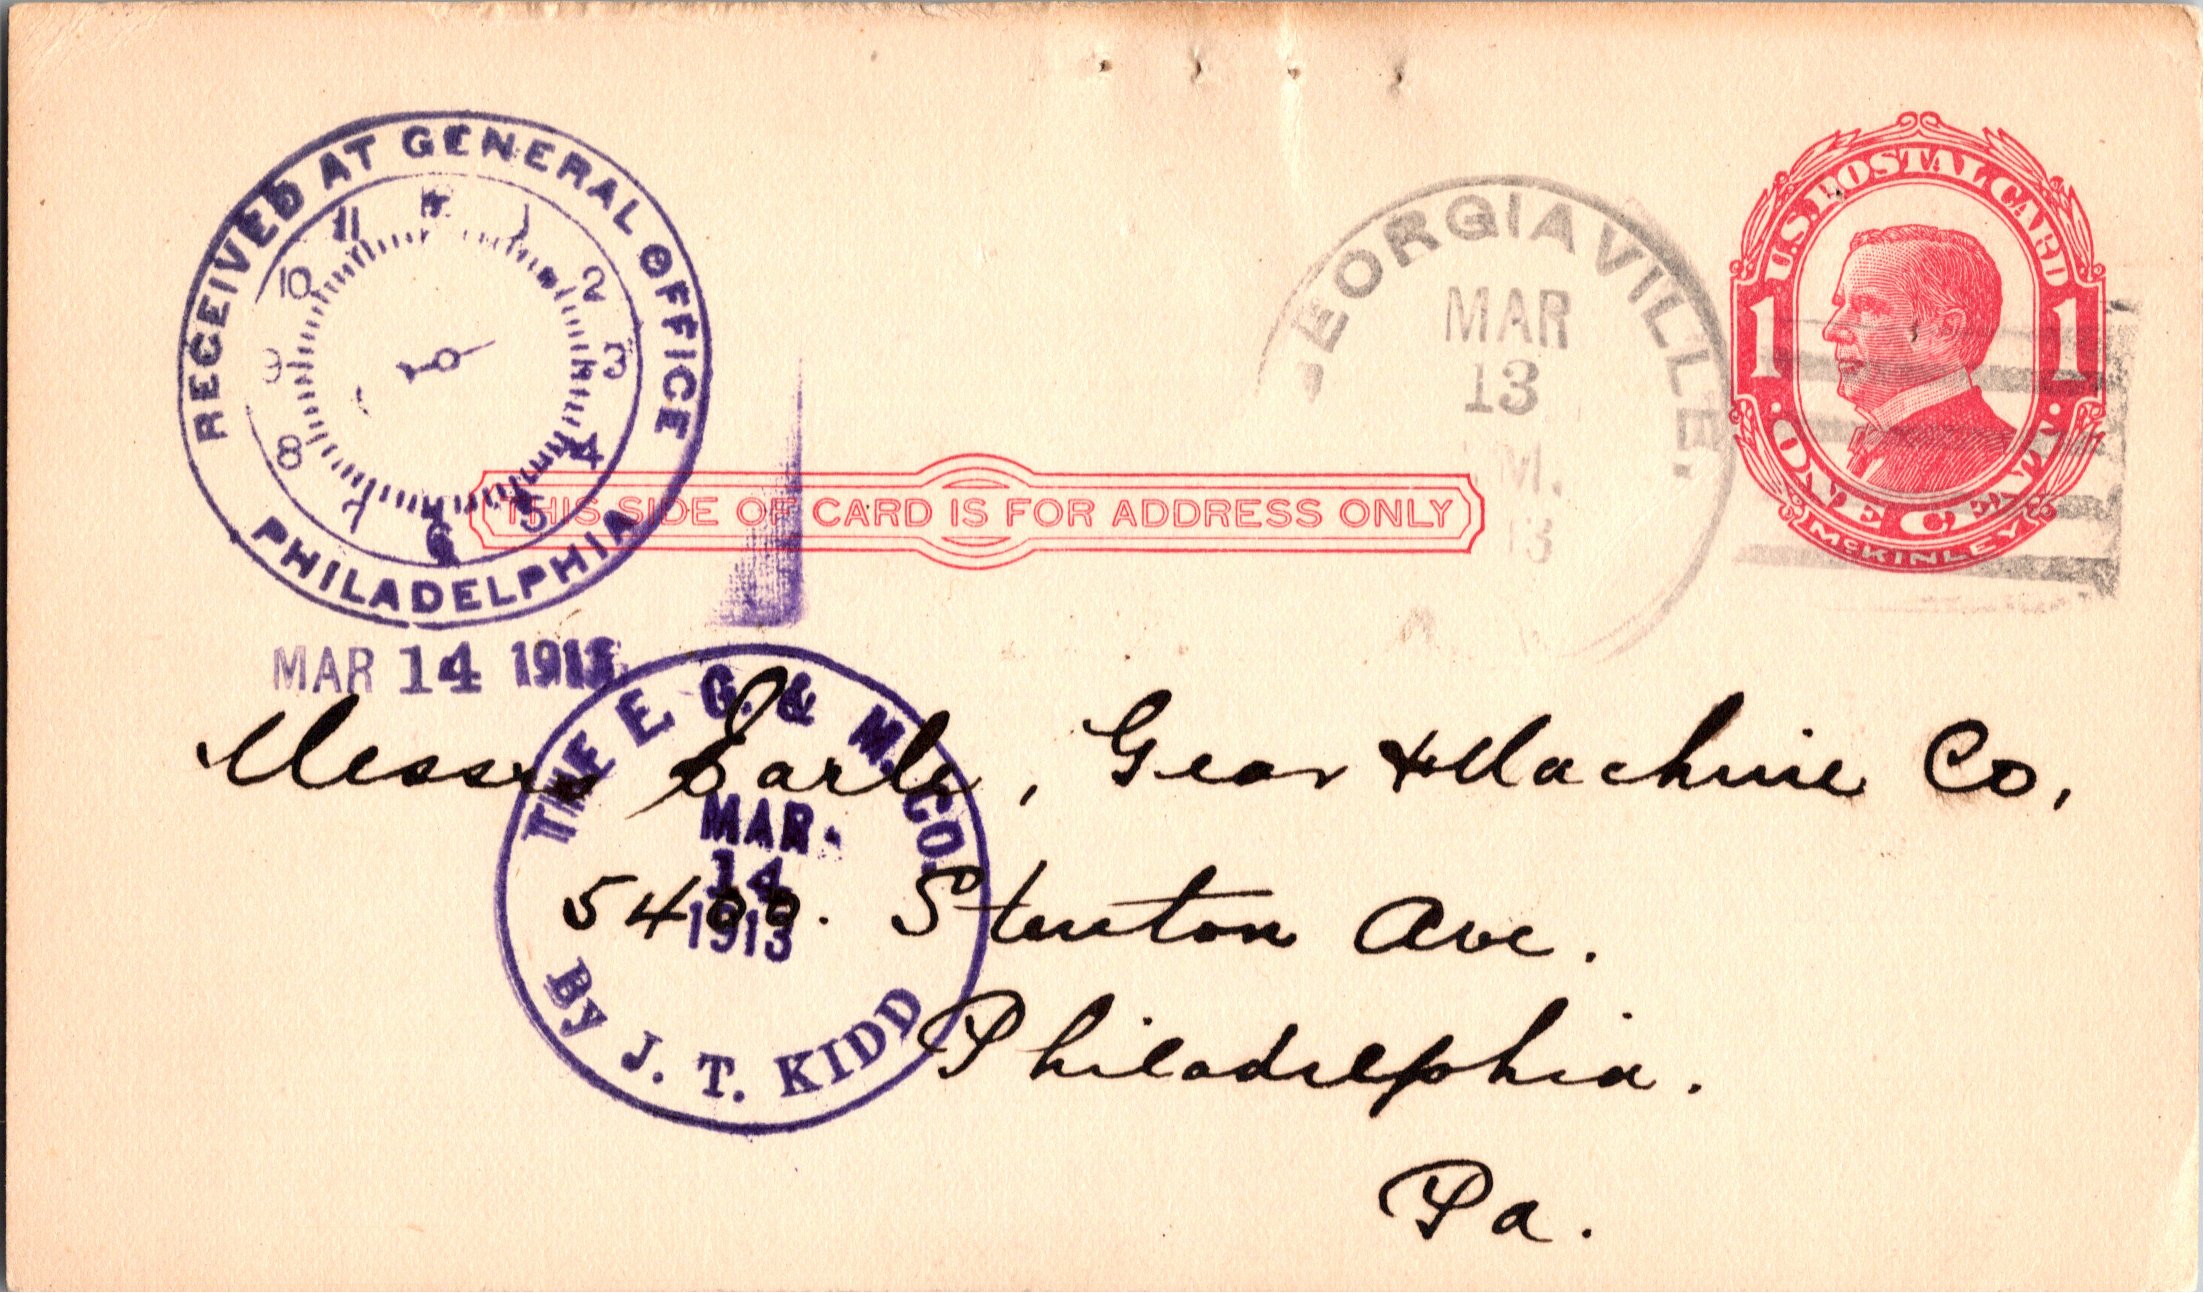 RECEIVED AT GENERAL OFFICE
11 1
10 2
9 3
8 4
7 6 5
PHILADELPHIA
MAR 14 1913
EORGIAVILLE.
MAR
13
M.
13
U.S. POSTAL CARD
1 1
ONE CENT
McKINLEY
THIS SIDE OF CARD IS FOR ADDRESS ONLY
THE E. G. & M. CO.
MAR.
14
1913
By J. T. KIDD
Messrs Earle, Gear & Machine Co,
5400. Stenton Ave.
Philadelphia.
Pa.